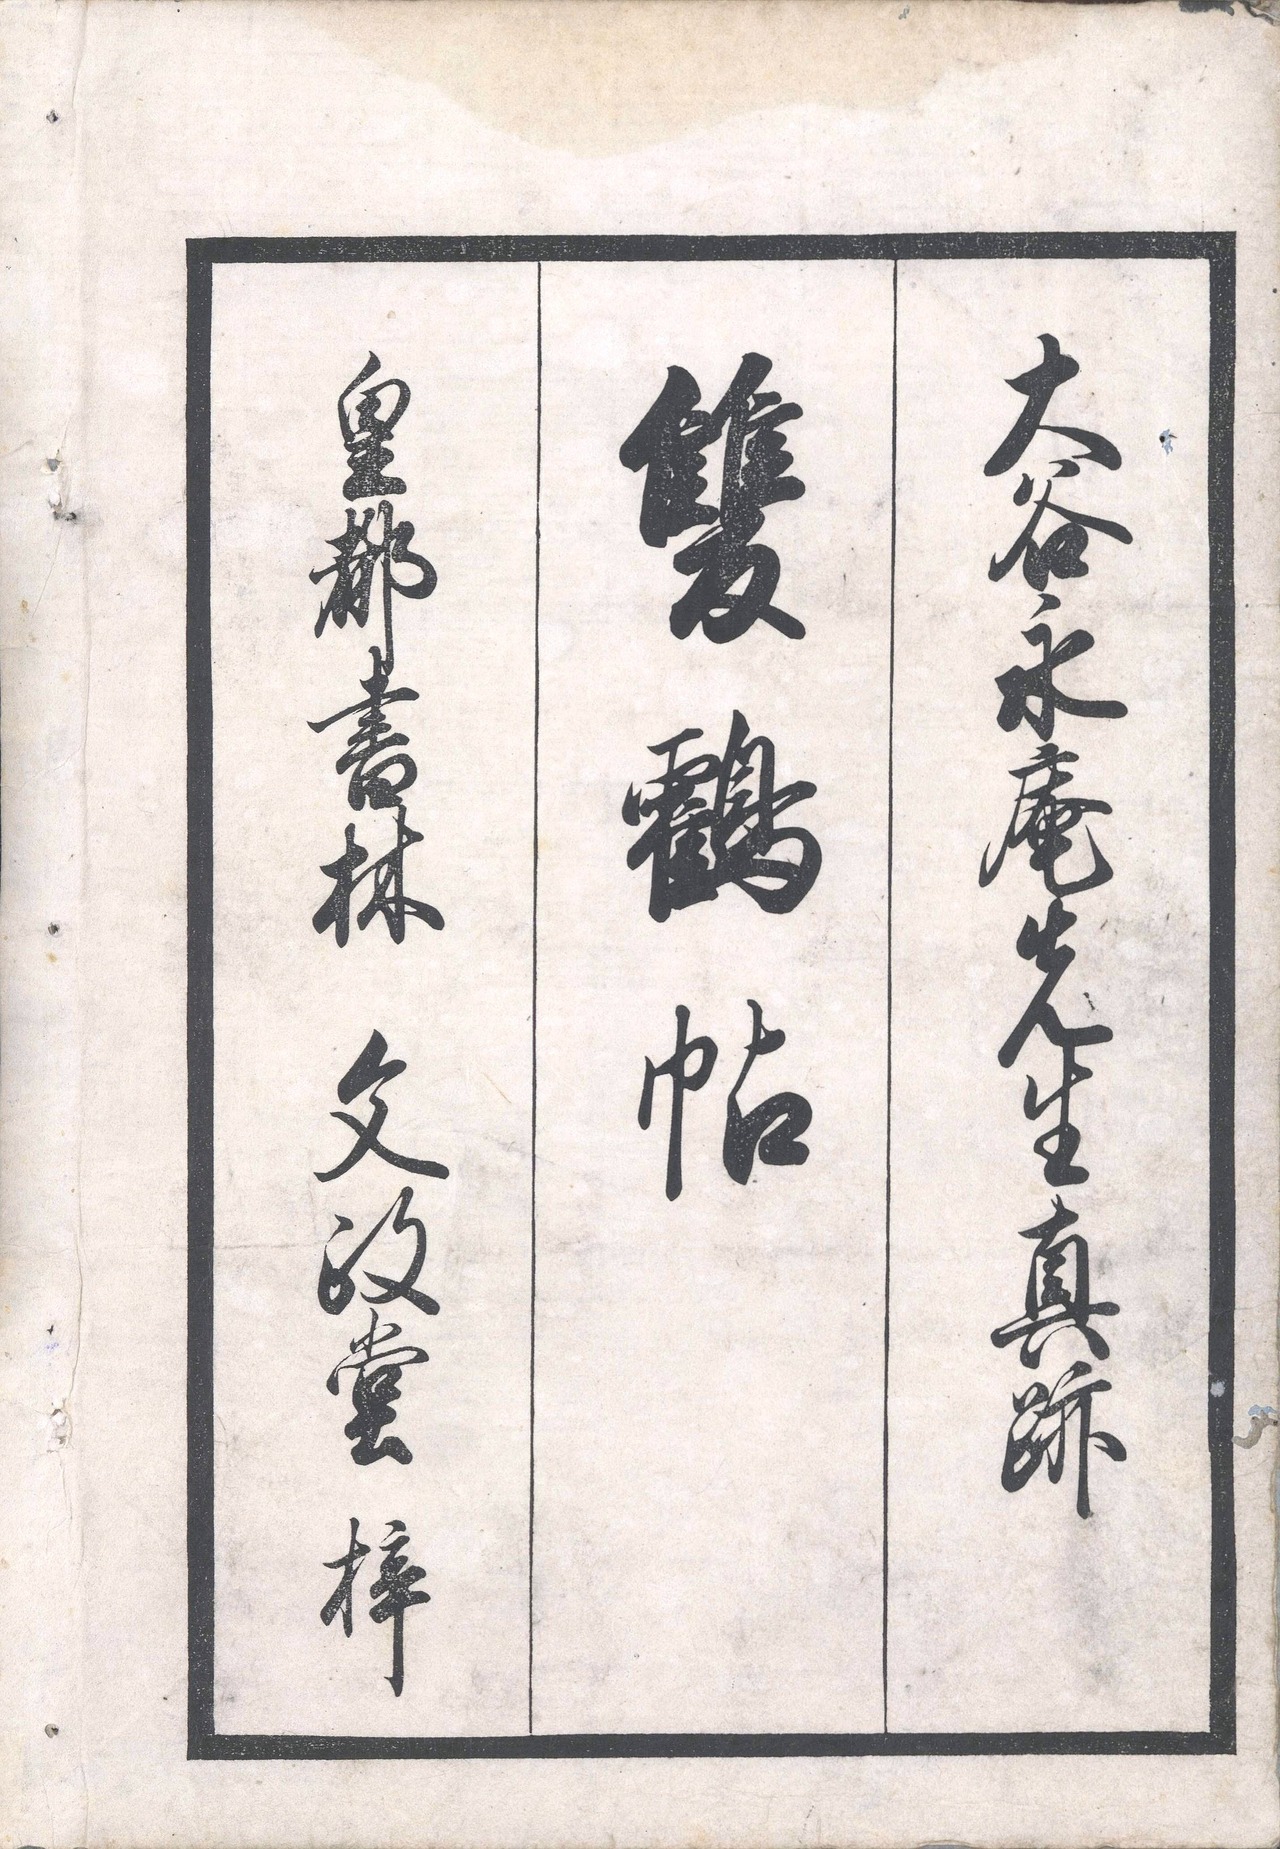 大谷永庵先生真跡
雙鶴帖
皇都書林 文政堂 梓